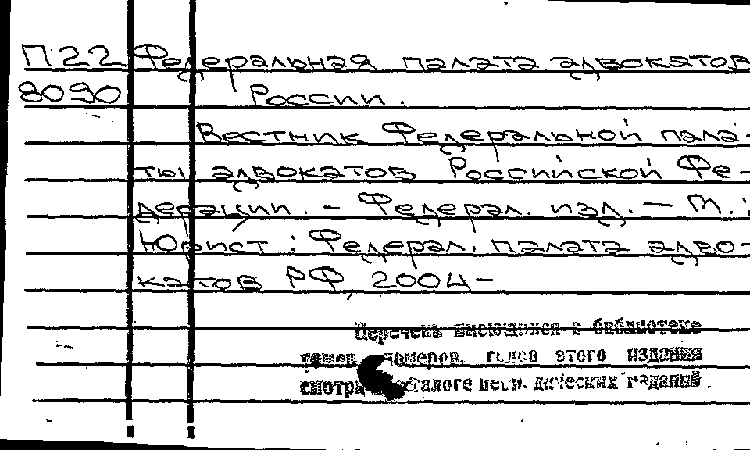 П22 Федеральная палата адвокатов
8090 России.
Вестник Федеральной пала-
ты адвокатов Российской Фе-
дерации. - Федерал. изд. - М.:
Юрист: Федерал. палата адво-
катов РФ, 2004-
Перечень имеющихся в библиотеке
томов, номеров, годов этого издания
смотри каталоге периодических изданий